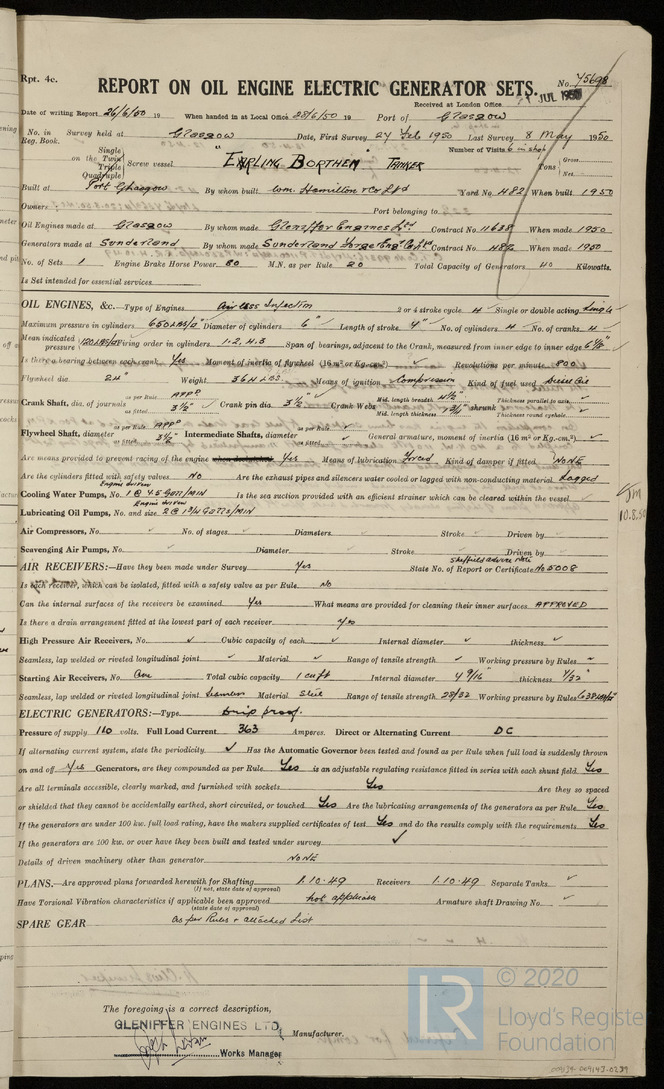 Rpt. 4c.
REPORT ON OIL ENGINE ELECTRIC GENERATOR SETS. No. 75698
Received at London Office JUL 1950
Date of writing Report 26/6/50 19 When handed in at Local Office 28/6/50 19 Port of Glasgow
No. in Reg. Book. Survey held at Glasgow Date, First Survey 24 Feb 1950 Last Survey 8 May 1950
Number of Visits 6 in shop
on the Single Twin Triple Quadruple Screw vessel "ERLING BORTHEN" TANKER Tons Gross Net
Built at Port Glasgow By whom built Wm. Hamilton & Co Ltd Yard No. 482 When built 1950
Owners Port belonging to
Oil Engines made at Glasgow By whom made Gleniffer Engines Ltd. Contract No. 11638 When made 1950
Generators made at Sunderland By whom made Sunderland Forge Eng. Co Ltd Contract No. 482 When made 1950
No. of Sets 1 Engine Brake Horse Power 80 M.N. as per Rule 20 Total Capacity of Generators 40 Kilowatts.
Is Set intended for essential services
OIL ENGINES, &c.—Type of Engines Airless Injection 2 or 4 stroke cycle 4 Single or double acting Single
Maximum pressure in cylinders 650 LBS/□" Diameter of cylinders 6" Length of stroke 4" No. of cylinders 4 No. of cranks 4
Mean indicated pressure 120 LBS/□" Firing order in cylinders 1-2-4-3 Span of bearings, adjacent to the Crank, measured from inner edge to inner edge
Is there a bearing between each crank Yes Moment of inertia of flywheel (16 m² or Kg.-cm.²) ✓ Revolutions per minute 800
Flywheel dia. 24" Weight 364 LBS Means of ignition Compression Kind of fuel used Diesel Oil
Crank Shaft, dia. of journals as per Rule APPD as fitted 3½" Crank pin dia. 3½" Crank Webs Mid. length breadth 4½" Mid. length thickness shrunk Thickness parallel to axis Thickness round eyehole
Flywheel Shaft, diameter as per Rule APPD as fitted 3½" Intermediate Shafts, diameter as per Rule ✓ as fitted ✓ General armature, moment of inertia (16 m² or Kg.-cm.²) ✓
Are means provided to prevent racing of the engine when declutched Yes Means of lubrication Forced Kind of damper if fitted NONE
Are the cylinders fitted with safety valves NO Are the exhaust pipes and silencers water cooled or lagged with non-conducting material Lagged
Cooling Water Pumps, No. Engine driven 1 @ 45 Galls/MIN Is the sea suction provided with an efficient strainer which can be cleared within the vessel ✓
Lubricating Oil Pumps, No. and size Engine driven 2 @ 1¾ GALLS/MIN
JM
10.8.50
Air Compressors, No. ✓ No. of stages ✓ Diameters Stroke ✓ Driven by
Scavenging Air Pumps, No. ✓ Diameter Stroke ✓ Driven by
AIR RECEIVERS:—Have they been made under Survey Yes State No. of Report or Certificate Sheffield advice note No 5008
Is each receiver, which can be isolated, fitted with a safety valve as per Rule No
Can the internal surfaces of the receivers be examined Yes What means are provided for cleaning their inner surfaces APPROVED
Is there a drain arrangement fitted at the lowest part of each receiver Yes
High Pressure Air Receivers, No. ✓ Cubic capacity of each ✓ Internal diameter ✓ thickness ✓
Seamless, lap welded or riveted longitudinal joint ✓ Material ✓ Range of tensile strength ✓ Working pressure by Rules ✓
Starting Air Receivers, No. One Total cubic capacity 1 cu ft Internal diameter 4 9/16" thickness
Seamless, lap welded or riveted longitudinal joint Seamless Material Steel Range of tensile strength 28/32 Working pressure by Rules
ELECTRIC GENERATORS:—Type Drip proof.
Pressure of supply 110 volts. Full Load Current 363 Amperes. Direct or Alternating Current DC
If alternating current system, state the periodicity ✓ Has the Automatic Governor been tested and found as per Rule when full load is suddenly thrown
on and off Yes Generators, are they compounded as per Rule Yes is an adjustable regulating resistance fitted in series with each shunt field Yes
Are all terminals accessible, clearly marked, and furnished with sockets Yes Are they so spaced
or shielded that they cannot be accidentally earthed, short circuited, or touched Yes Are the lubricating arrangements of the generators as per Rule Yes
If the generators are under 100 kw. full load rating, have the makers supplied certificates of test Yes and do the results comply with the requirements Yes
If the generators are 100 kw. or over have they been built and tested under survey ✓
Details of driven machinery other than generator NONE
PLANS.—Are approved plans forwarded herewith for Shafting 1.10.49 Receivers 1.10.49 Separate Tanks ✓
(If not, state date of approval)
Have Torsional Vibration characteristics if applicable been approved not applicable Armature shaft Drawing No. ✓
(state date of approval)
SPARE GEAR as per Rules + attached List
The foregoing is a correct description,
GLENIFFER ENGINES LTD. Manufacturer.
Works Manager
© 2020
LR
Lloyd's Register
Foundation